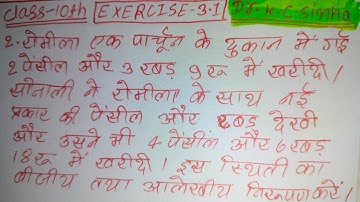 class-10th EXERCISE-3.1 Dr. K.C. Sinha
2. रोमीला एक पार्चून के दुकान में गई
2 पेंसील और 3 रबड़ 9 रू में खरीदी।
सोनाली ने रोमीला के साथ नई
प्रकार की पेंसील और रबड़ देखी
और उसने भी 4 पेंसील और 6 रबड़
18 रू में खरीदी। इस स्थिती का
बीजीय तथा आलेखीय निरूपण करें।